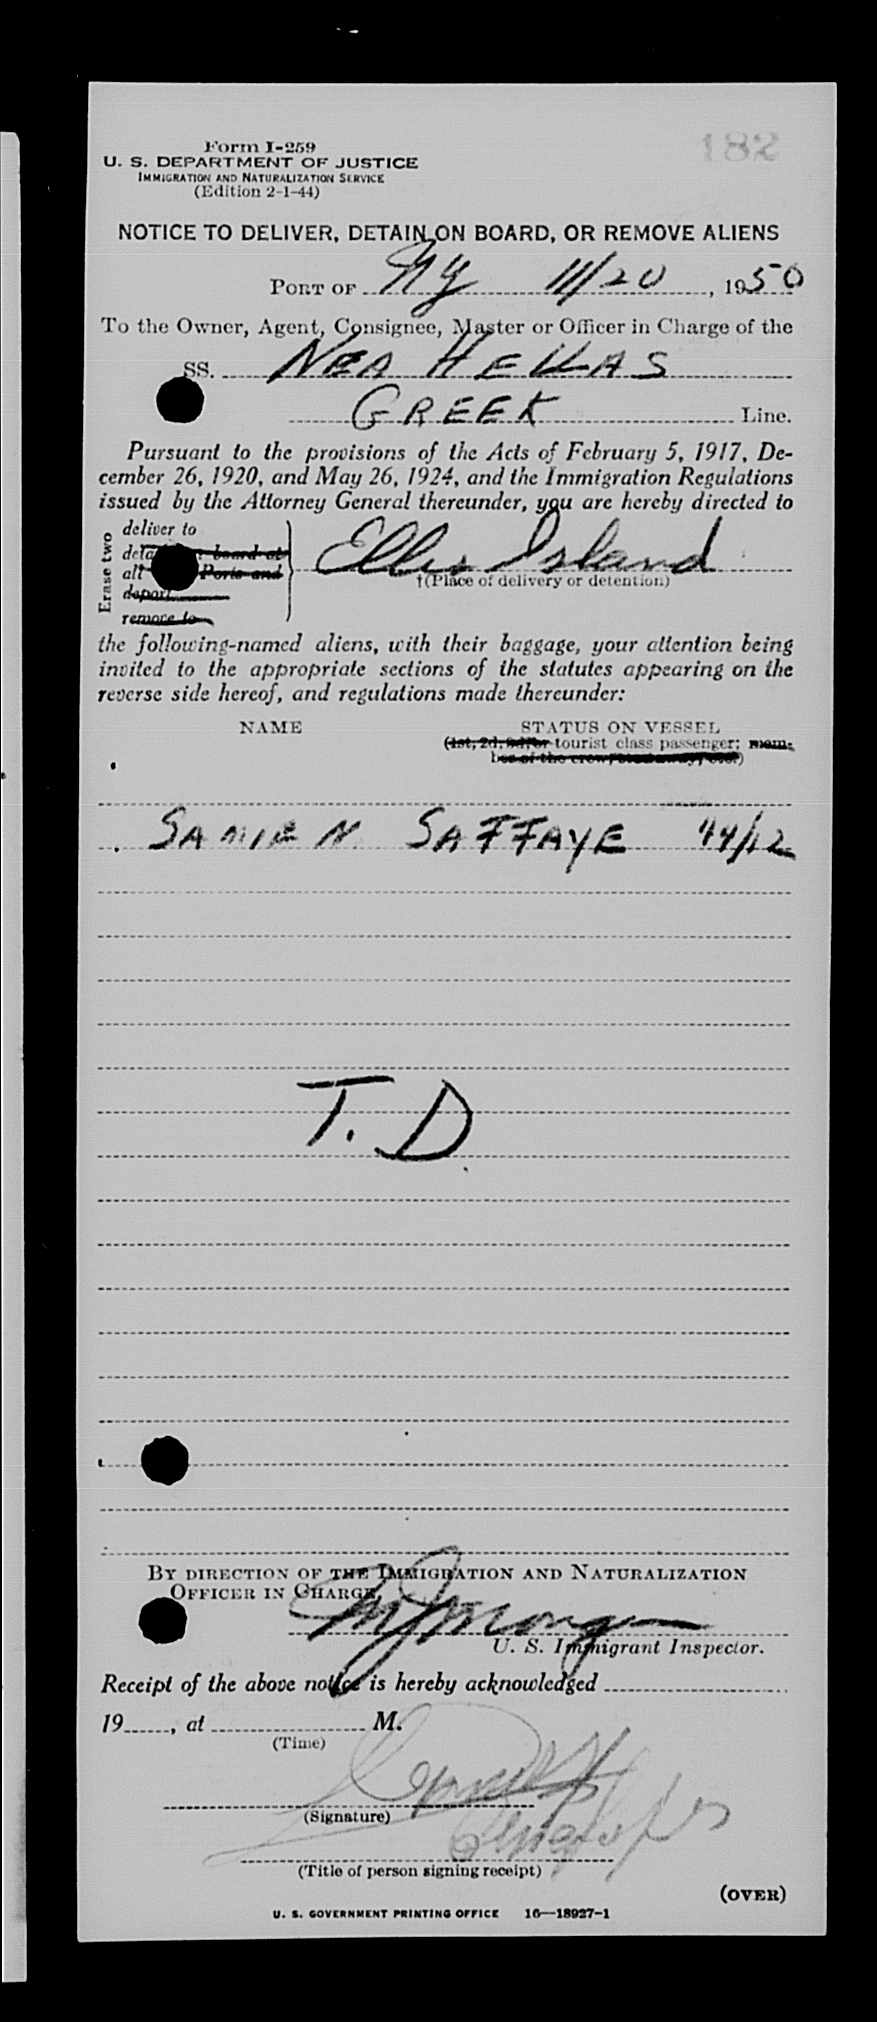 182
Form I-259
U. S. DEPARTMENT OF JUSTICE
IMMIGRATION AND NATURALIZATION SERVICE
(Edition 2-1-44)
NOTICE TO DELIVER, DETAIN ON BOARD, OR REMOVE ALIENS
PORT OF NY 11/20, 1950
To the Owner, Agent, Consignee, Master or Officer in Charge of the
SS. NEA HELLAS
GREEK Line.
Pursuant to the provisions of the Acts of February 5, 1917, De-
cember 26, 1920, and May 26, 1924, and the Immigration Regulations
issued by the Attorney General thereunder, you are hereby directed to
Erase two
deliver to
board at
all Ports and
deport
remove to
Ellis Island
†(Place of delivery or detention)
the following-named aliens, with their baggage, your attention being
invited to the appropriate sections of the statutes appearing on the
reverse side hereof, and regulations made thereunder:
NAME STATUS ON VESSEL
(1st, 2d, 3d, or tourist class passenger; mem-
ber of the crew, stowaway, etc.)
SAMIR N SAFFAYE 44/12
T. D.
BY DIRECTION OF THE IMMIGRATION AND NATURALIZATION
OFFICER IN CHARGE,
U. S. Immigrant Inspector.
Receipt of the above notice is hereby acknowledged
19, at M.
(Time)
(Signature)
(Title of person signing receipt)
(OVER)
U. S. GOVERNMENT PRINTING OFFICE 16—18927-1